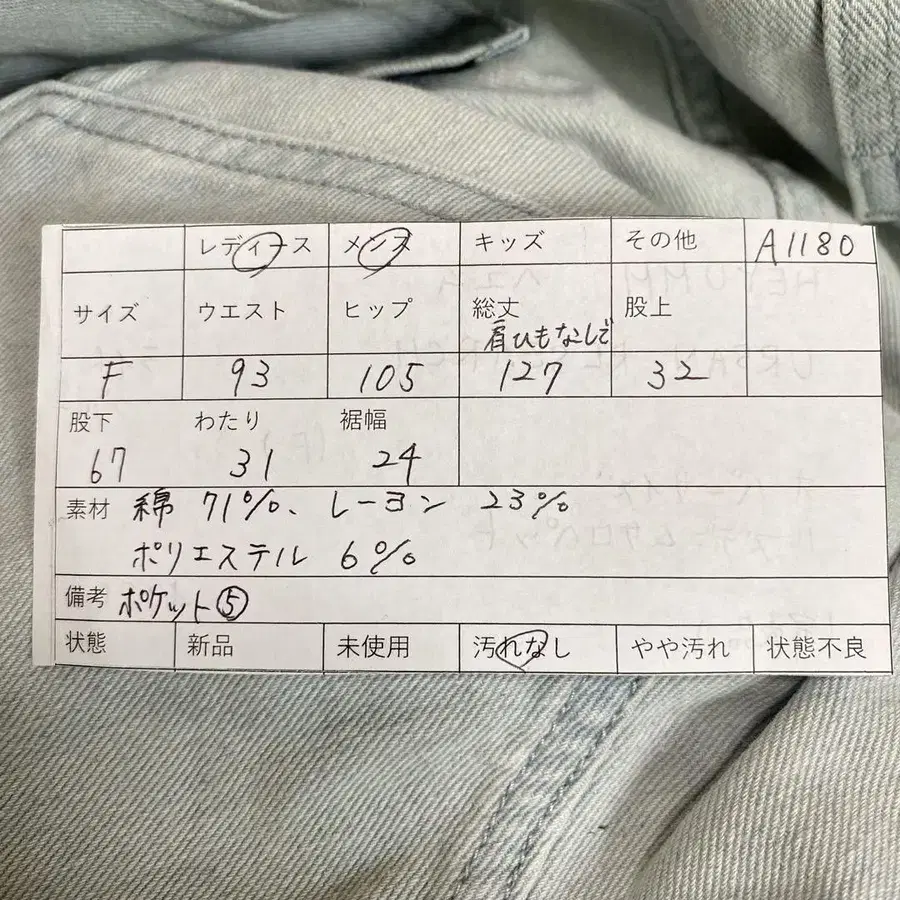 レディース メンズ キッズ その他 A1180
サイズ ウエスト ヒップ 総丈 股上
肩ひもなしで
F 93 105 127 32
股下 わたり 裾幅
67 31 24
素材 綿 71%、レーヨン 23%
ポリエステル 6%
備考 ポケット⑤
状態 新品 未使用 汚れなし やや汚れ 状態不良